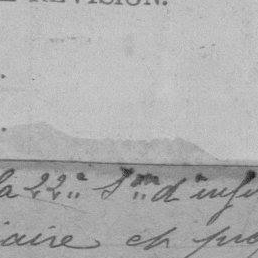 REVISION.
la 22e Son d'infi
iaire et pro